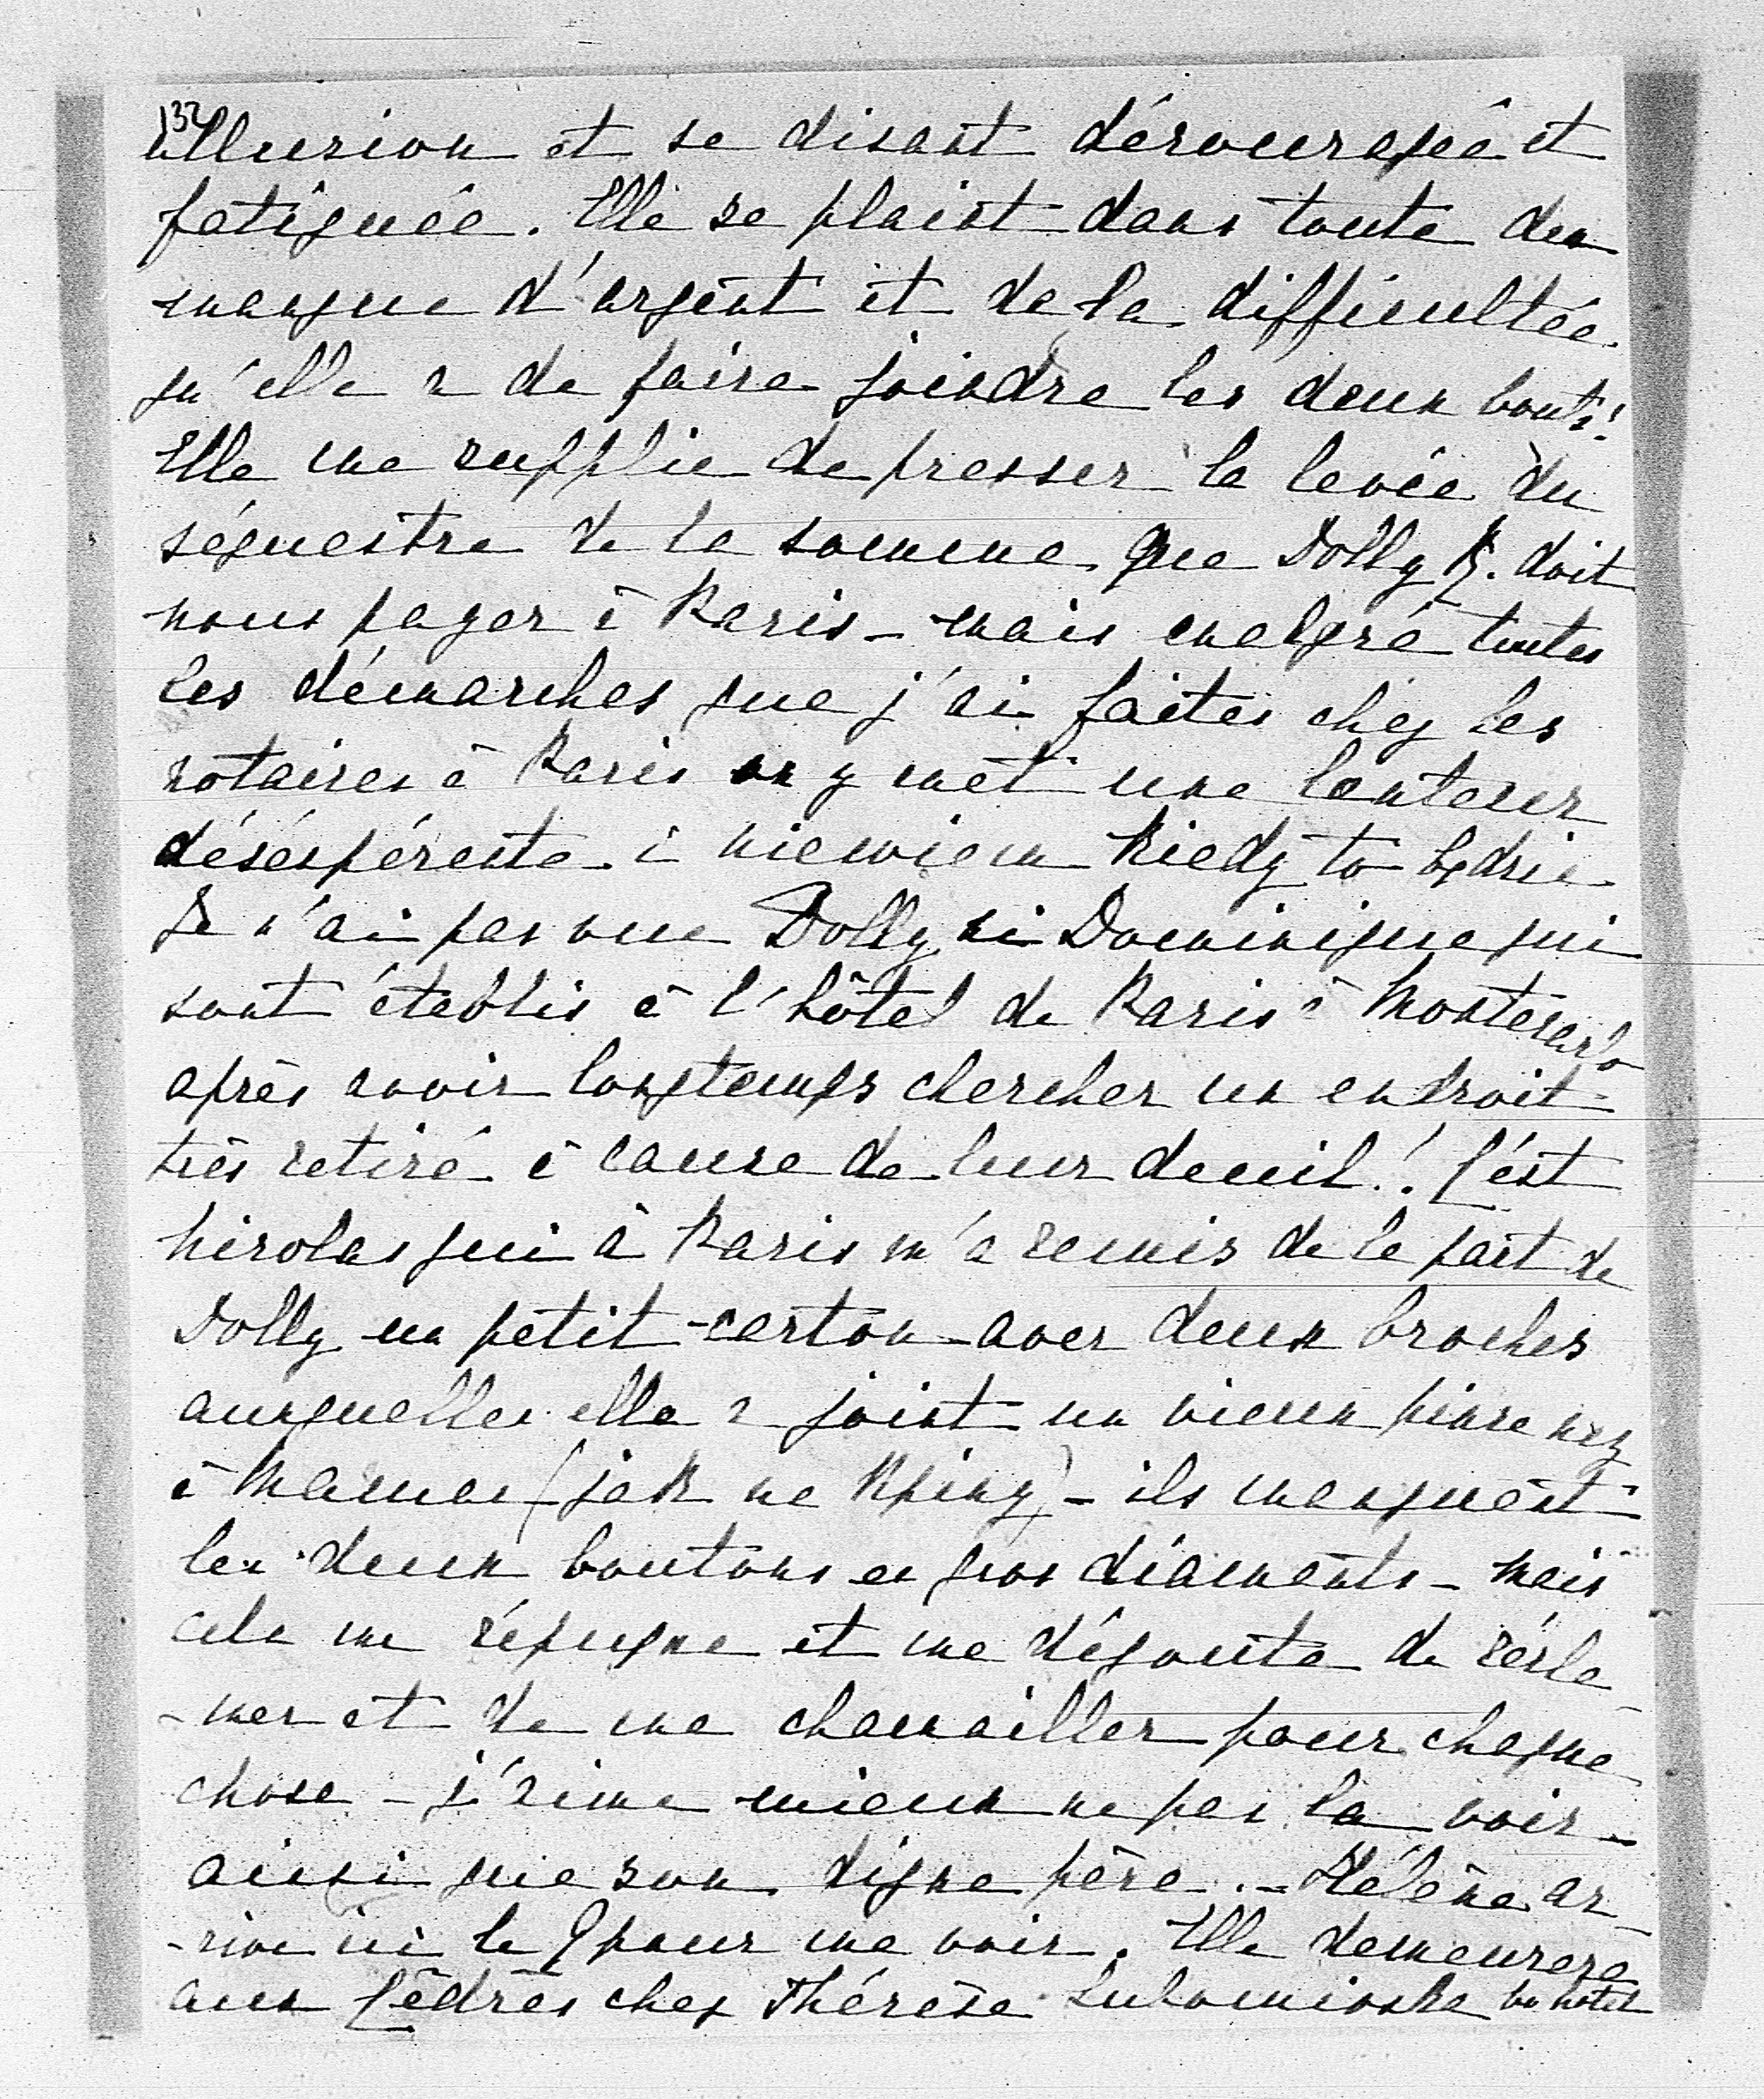 132
allusion et se disant découragée et
fatiguée. Elle se plaint dans toute du
manque d'argent et de la difficultée
qu'elle a de faire joindre les deux bouts!
Elle me supplie de presser la levée du
séquestre de la somme que Dolly R. doit
nous payer à Paris - mais malgré toutes
les démarches que j'ai faites chez les
notaires à Paris on y met une lenteur
désespérente - i niewiem kiedy to będzie
Je n'ai pas vue Dolly ni Dominique qui
sont établis à l'hôtel de Paris à Montecarlo
après avoir longtemps chercher un endroit
très retiré à cause de leur deuil! C'est
Nicolas qui à Paris m'a remis de la part de
Dolly un petit carton avec deux broches
auxquelles elle a joint un vieux pince nez
à Maman (jak na kpiny) - ils manquent
les deux boutons en gros diamants - mais
cela me répugne et me dégoute de récla-
-mer et de me chamailler pour chaque
chose - j'aime mieux ne pas la voir -
ainsi que son digne père. - Hélène ar-
-rive ici le 9 pour me voir. Elle demeurera
aux Cèdres chez Thérèse Lubomirska